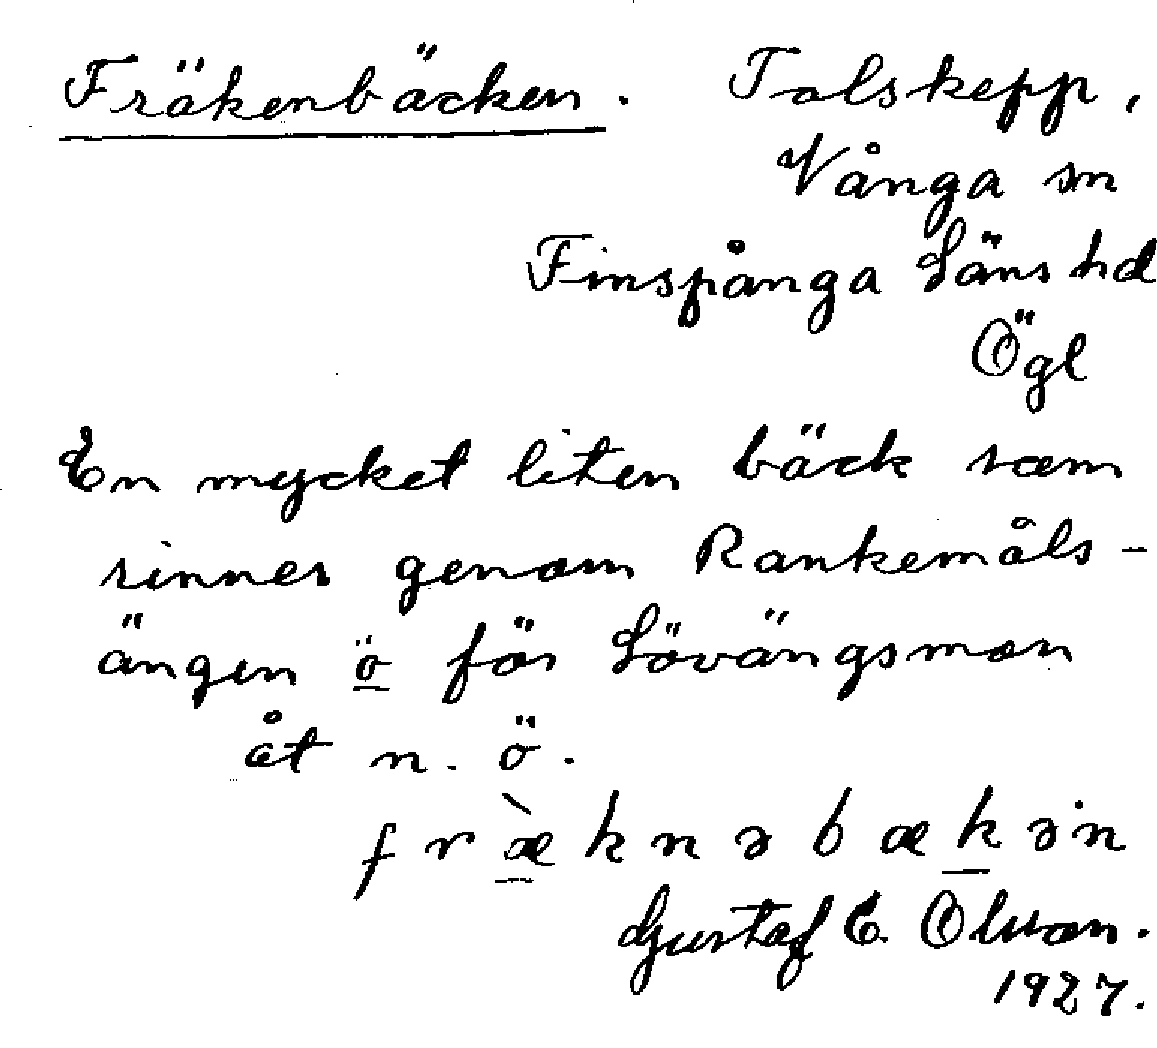 Fräkenbäcken. Tolskepp,
Vånga sn
Finspånga Läns hd
Ögl
En mycket liten bäck som
rinner genom Rankemåls-
ängen ö för Lövängsmon
åt n. ö.
fræ̀knəbækən
Gustaf E. Olsson.
1927.